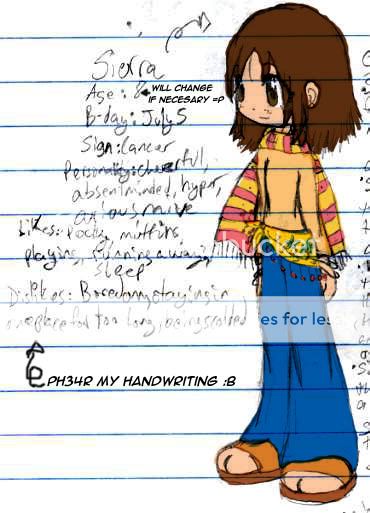 Sierra
Age: 8
WILL CHANGE
IF NECESARY =P
B-day: July 5
Sign: Cancer
Personality: cheerful,
absentminded, hyper,
naive
Likes: Pocky, muffins
playing, running away,
sleep
Dislikes: Boredom, staying in
one place for too long, being scolded
bucket
es for les
PH34R MY HANDWRITING :B